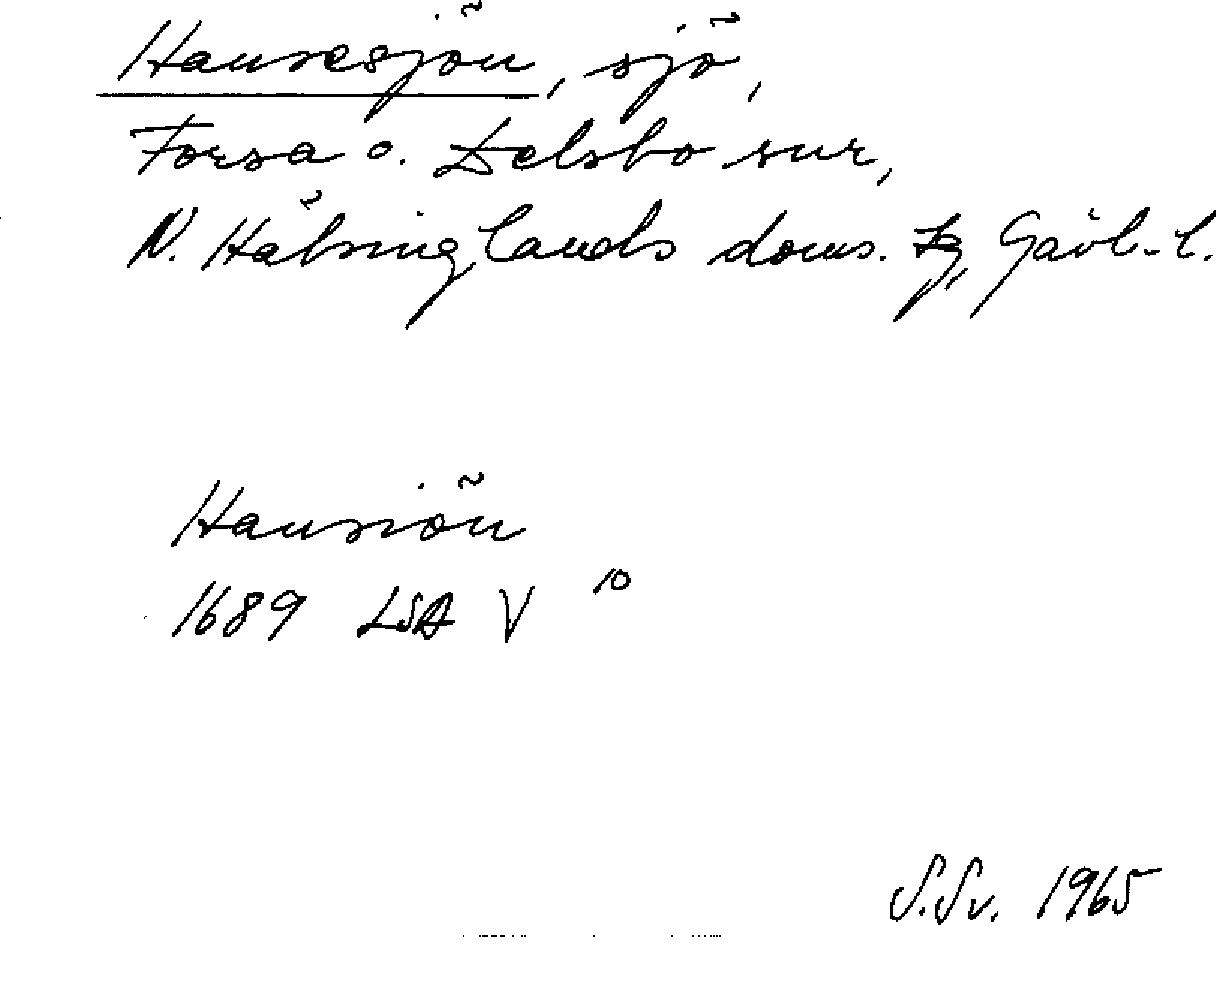 Hansesjön, sjö,
Forsa o. Delsbo snr,
N. Hälsinglands doms. tg, Gävl. l.
Hansiön
1689 LSA V 10
S.Sv. 1965